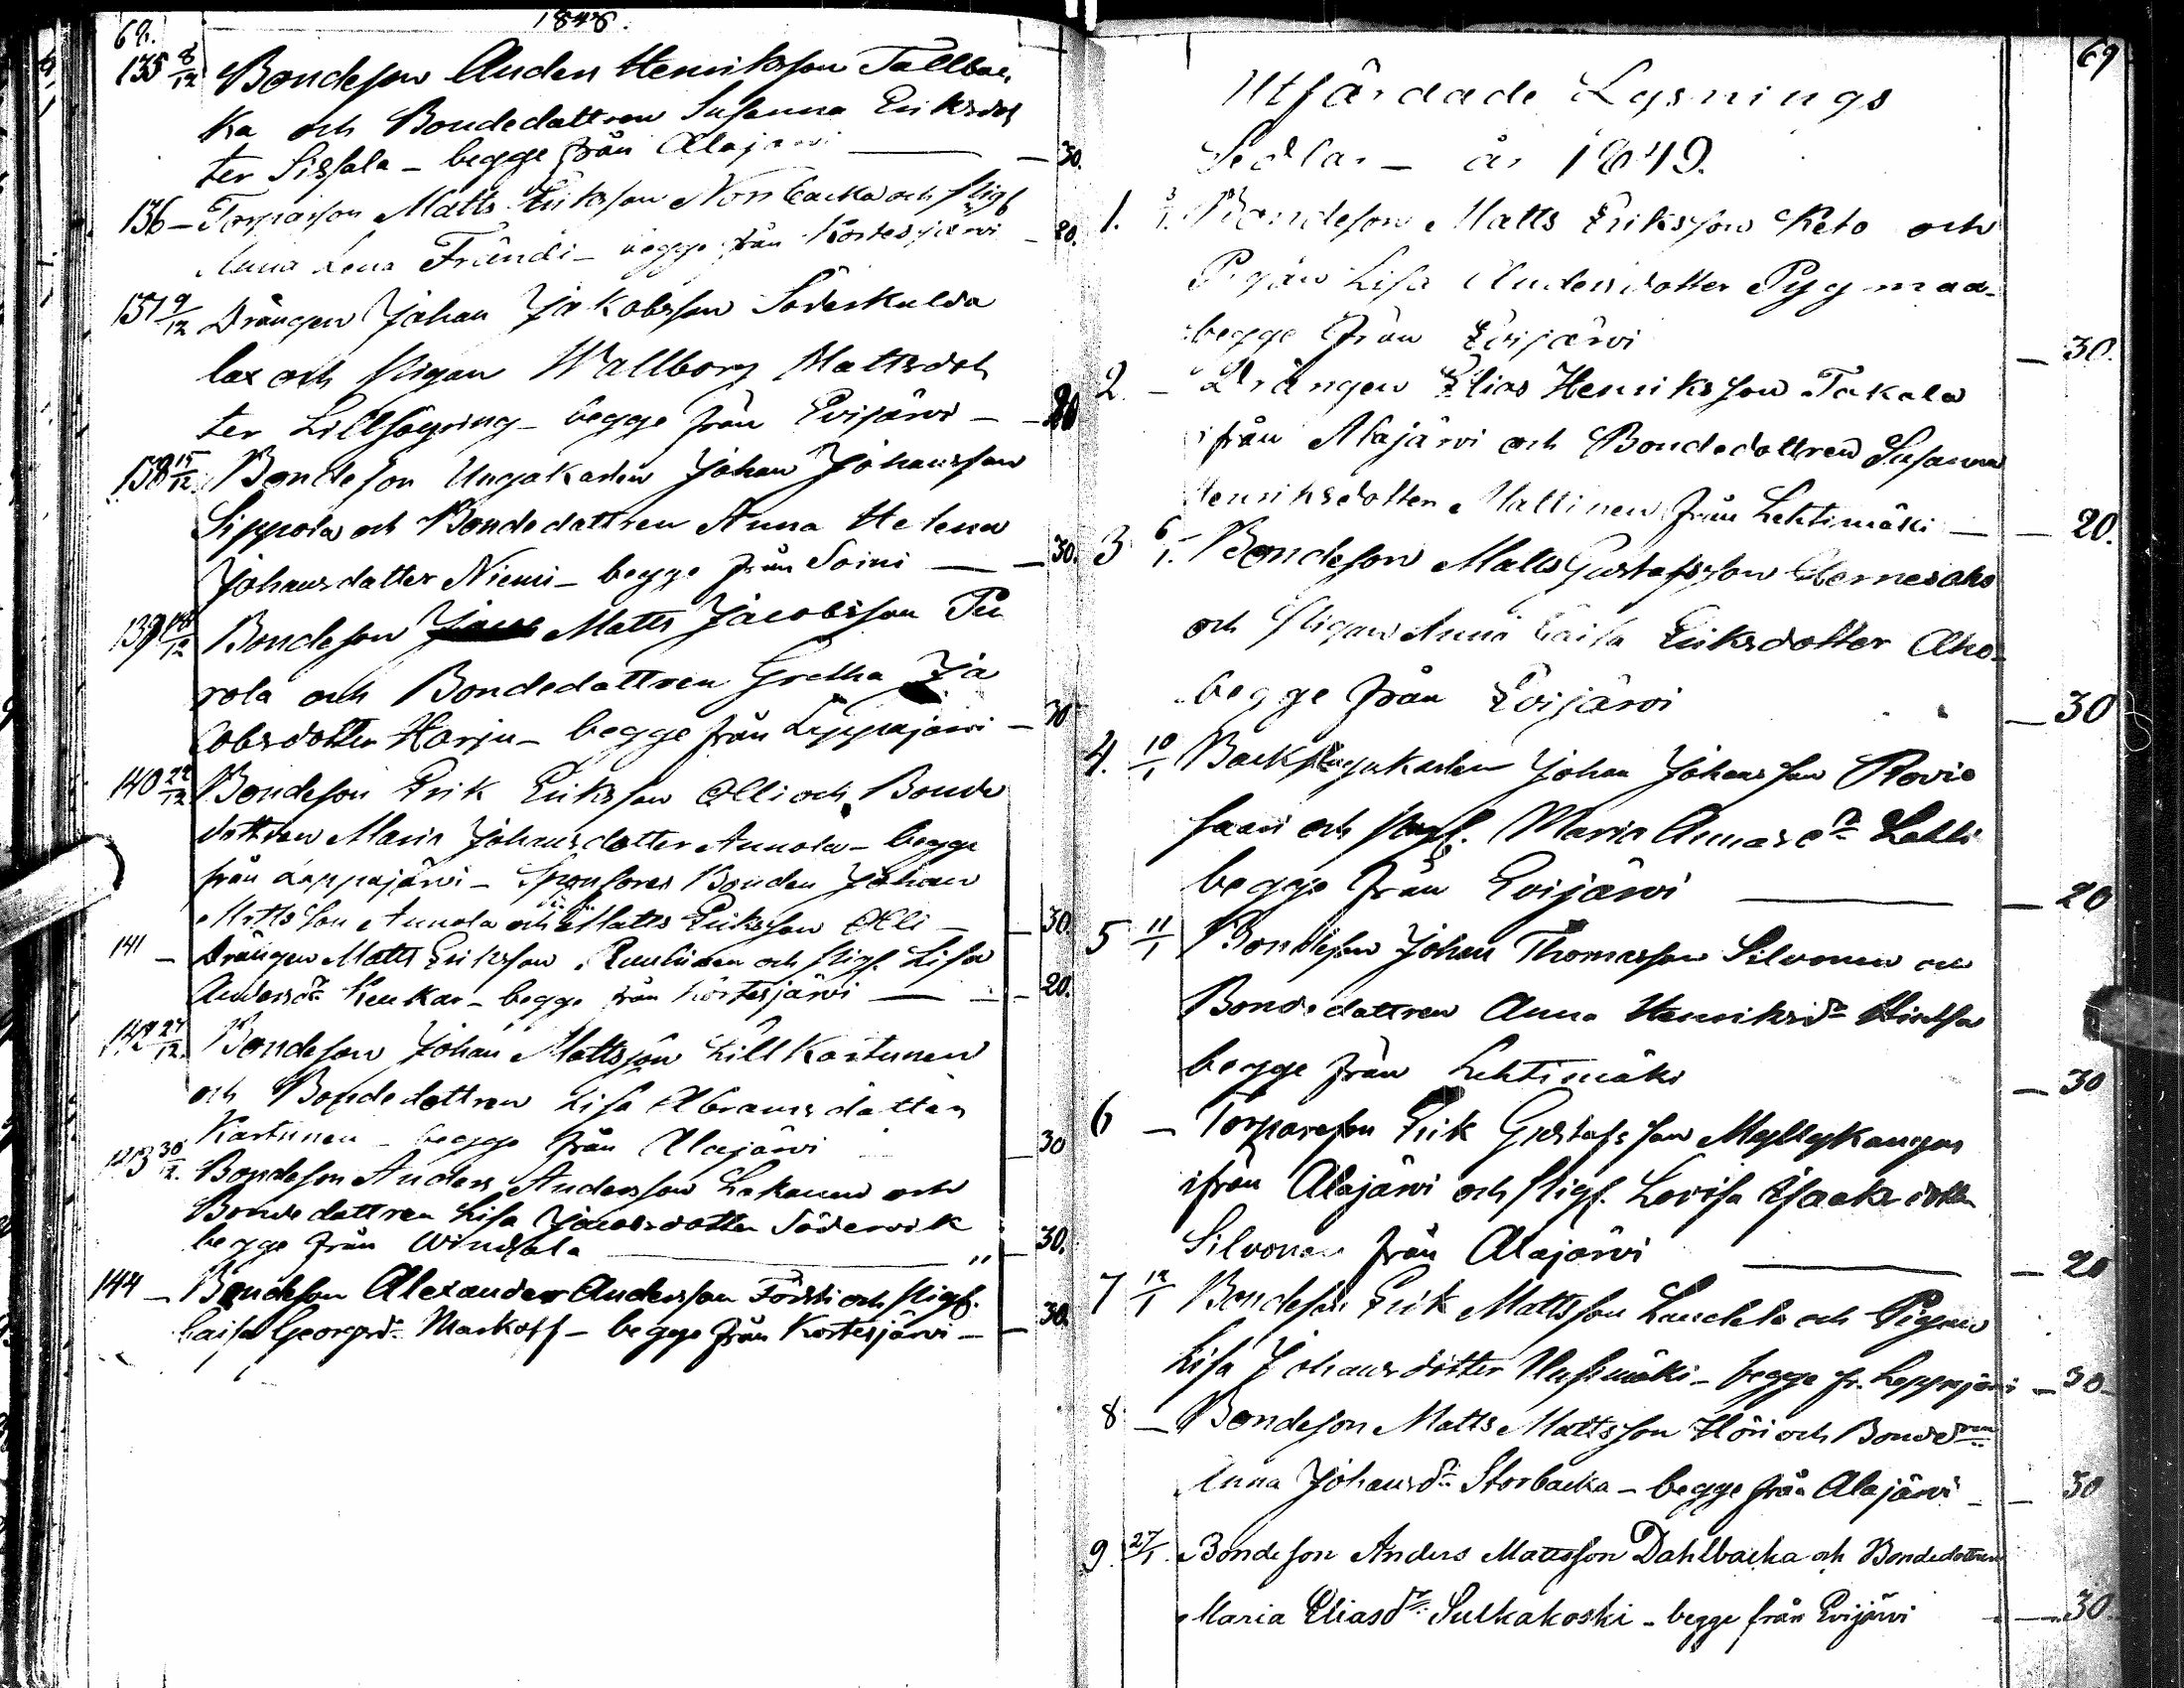 68.
1848.
135 8/12 Bondeson Anders Henriksson Tallbac
ka och Bondedattren Susanna Eriksdot
ter Sissala - begge från Alajärvi — 30.
136 - Torparson Matts Eriksson Norrbacka och Pigf
Anna Lena Frändi - begge från Kortesjärvi - 20.
137 9/12 Drängen Johan Jakobsson Söderkulda
lax och Pigan Wallborg Mattsdot
ter - begge från Evijärvi - - 20
138 15/12 Bondeson Ungakarlen Johan Johansson
Sippola och Bondedattren Anna Helena
Johansdatter Niemi - begge från Soini — 30.
139 18/12 Bondeson Matts Jacobsson Pu
rola och Bondedattren Gretha Ja
cobsdotter Harju - begge från Lappajärvi - 30
140 22/12 Bondeson Erik Eriksson Olli och Bonde
dottren Maria Johansdotter Annola - begge
från Lappajärvi - Sponsores Bonden Johan
Mattsson Annola och Matts Eriksson Olli - 30.
141 - Drängen Matts Eriksson och Pigf. Lisa
Andersdr - begge från Kortesjärvi — 20.
142 27/12 Bondeson Johan Mattsson Lill Kartunen
och Bondedottren Lisa Abramsdotter
Kartunen - begge från Alajärvi — 30
143 30/12. Bondeson Anders Andersson Lakanen och
Bondedattren Lisa Jacobsdotter Södervik
begge från Windala — " 30.
144 - Bondeson Alexander Andersson Försti och Pigf.
Caisa Georgsdr Markoff - begge från Kortesjärvi - 30.
69
Utfärdade Lysnings
Sedlar - år 1849.
1. 3/1. Bondeson Matts Eriksson Keto och
Pigan Lisa Andersdotter Pygmaa-
begge från Evijärvi — 30.
2. - Drängen Elias Henriksson Takala
ifrån Alajärvi och Bondedottren Susanna
Henriksdotter Mattinen från Lehtimäki — 20.
3 6/1. Bondeson Matts Gustafsson Hernesaho
och Pigan Anna Caisa Eriksdotter Aho-
begge från Evijärvi — 30
4. 10/1 Backstugukarlen Johan Johansson Rovio
saari och Pigf. Maria Annasdr Lahti
begge från Evijärvi — 20
5 11/1 Bondeson Johan Thomasson Silvonen och
Bondedattren Anna Henriksdr
begge från Lehtimäki — 30
6 - Torpareson Erik Gustafsson Myllykangas
ifrån Alajärvi och Pigf. Lovisa Isaaksdotter
Silvonen från Alajärvi — 20
7 12/1 Bondeson Erik Mattsson Landela och Pigan
Lisa Johansdotter Uusimäki - begge fr. Lappajärvi - 30-
8 - Bondeson Matts Mattsson Höri och Bonddren
Anna Johansdr Storbacka - begge från Alajärvi - 30
9. 27/1. Bondeson Anders Mattsson Dahlbacka och Bondedottren
Maria Eliasdr Sulkakoski - begge från Evijärvi — 30.